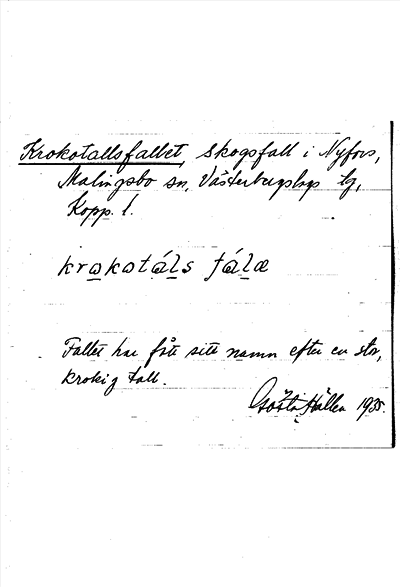 Krokotallsfallet, skogsfall i Nyfors,
Malingsbo sn, Västerbergslags lg,
Kopp. l.
krokotáls fálæ
Fallet har fått sitt namn efter en stor,
krokig tall.
Gösta Hallén 1935.